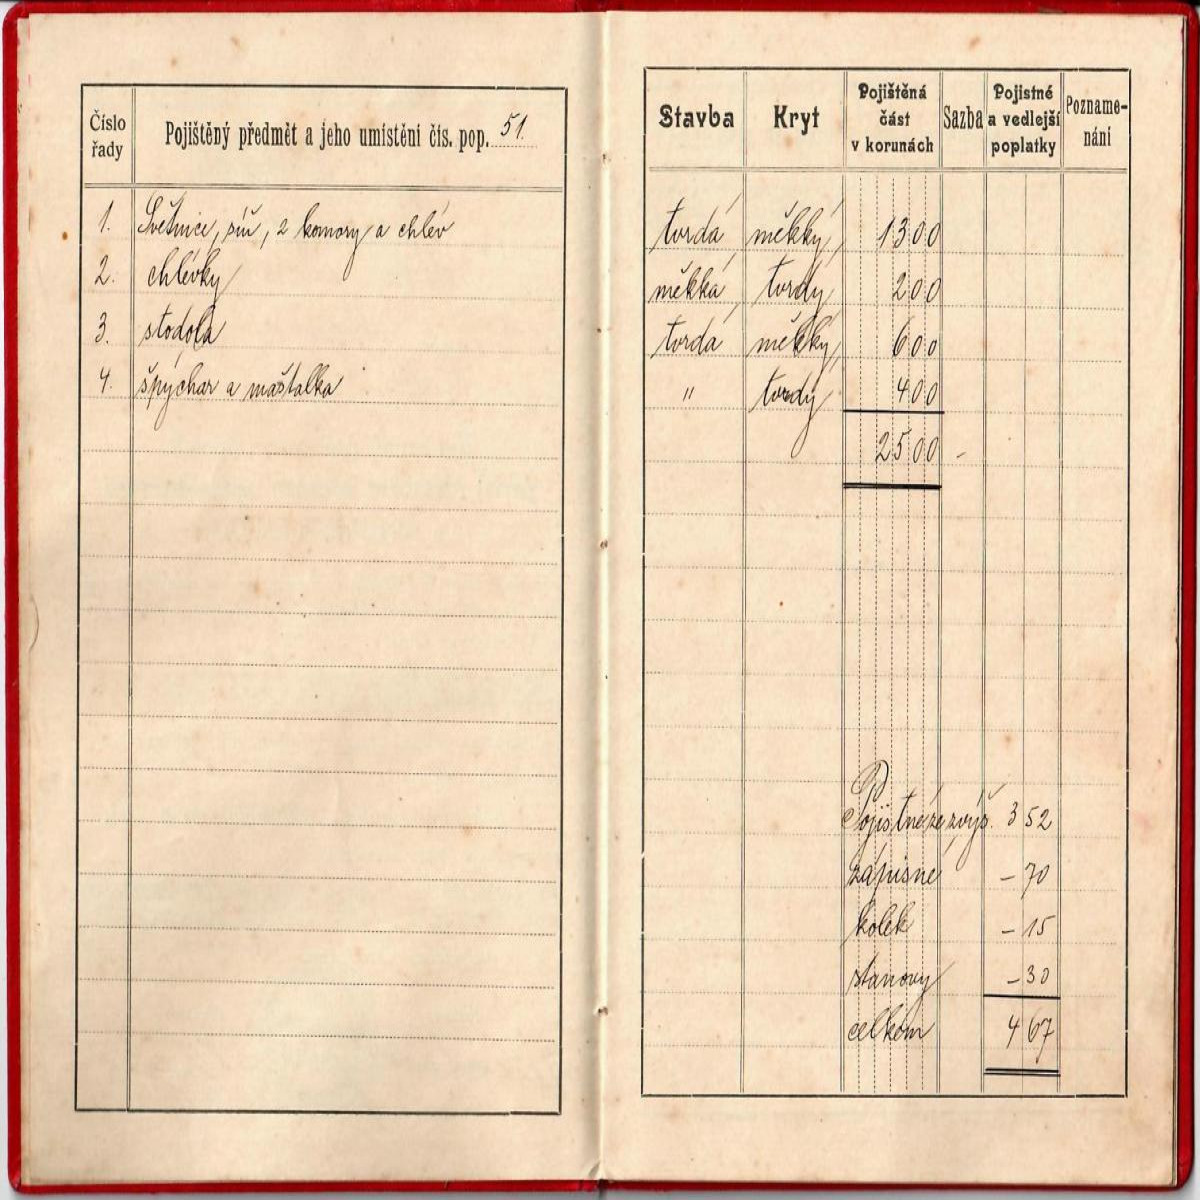 Číslo řady
Pojištěný předmět a jeho umístění čís. pop. 51.
1. Světnice, síň, 2 komory a chlév
2. chlévky
3. stodola
4. špýchar a maštalka
Stavba
Kryt
Pojištěná část v korunách
Sazba
Pojistné a vedlejší poplatky
Poznamenání
tvrdá měkký 1300
měkká tvrdý 200
tvrdá měkký 600
" tvrdý 400
2500 -
Pojistné ze zvýš. 3 52
zápisné - 70
kolek - 15
stanovy - 30
celkem 4 67